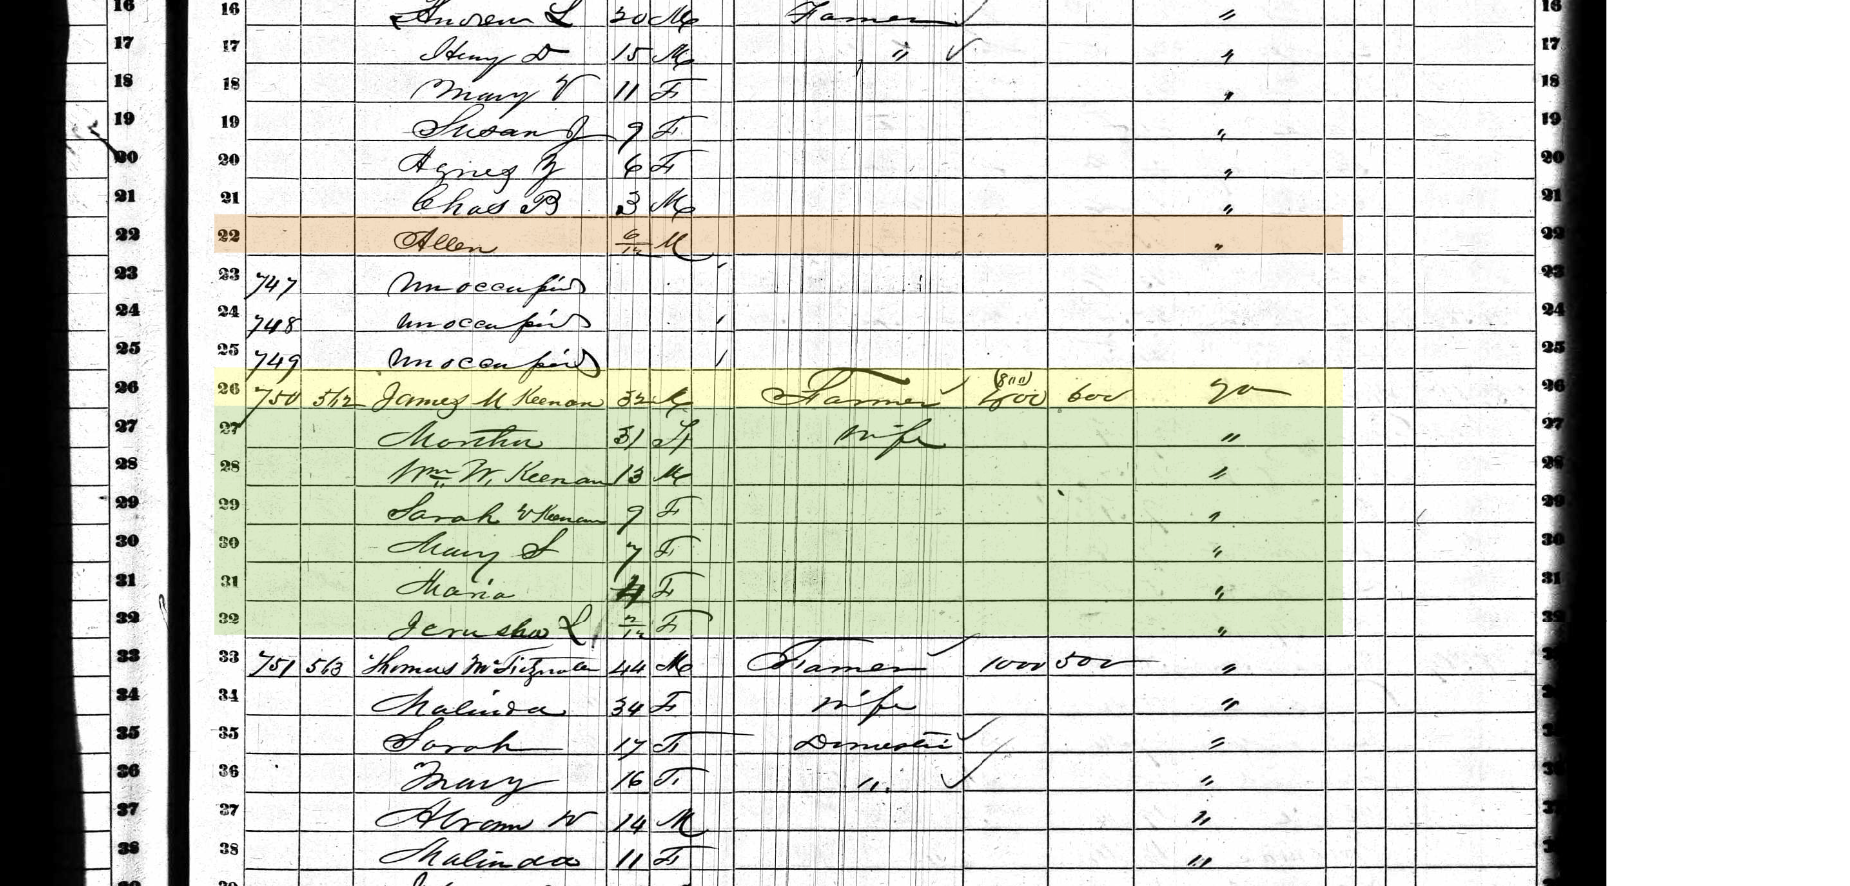 16 16 Andrew L 20 M Farmer " 16
17 17 Henry D 15 M " " 17
18 18 Mary V 11 F " 18
19 19 Susan J 9 F " 19
20 20 Agnes 6 F " 20
21 21 Chas B 3 M " 21
22 22 Allen 6/12 M " 22
23 23 747 Unoccupied 23
24 24 748 Unoccupied 24
25 25 749 Unoccupied 25
26 26 750 562 James M Keenan 32 M Farmer 600 Va 26
27 27 Martha 31 F Wife " 27
28 28 Wm W. Keenan 13 M " 28
29 29 Sarah V Keenan 9 F " 29
30 30 Mary S 7 F " 30
31 31 Maria 4 F " 31
32 32 Jerusha L 2/12 F " 32
33 33 751 563 Thomas 44 M Farmer 1000 500 " 33
34 34 Malinda 34 F Wife " 34
35 35 Sarah 17 F Domestic " 35
36 36 Mary 16 F " " 36
37 37 Abram W 14 M " 37
38 38 Malinda 11 F " 38